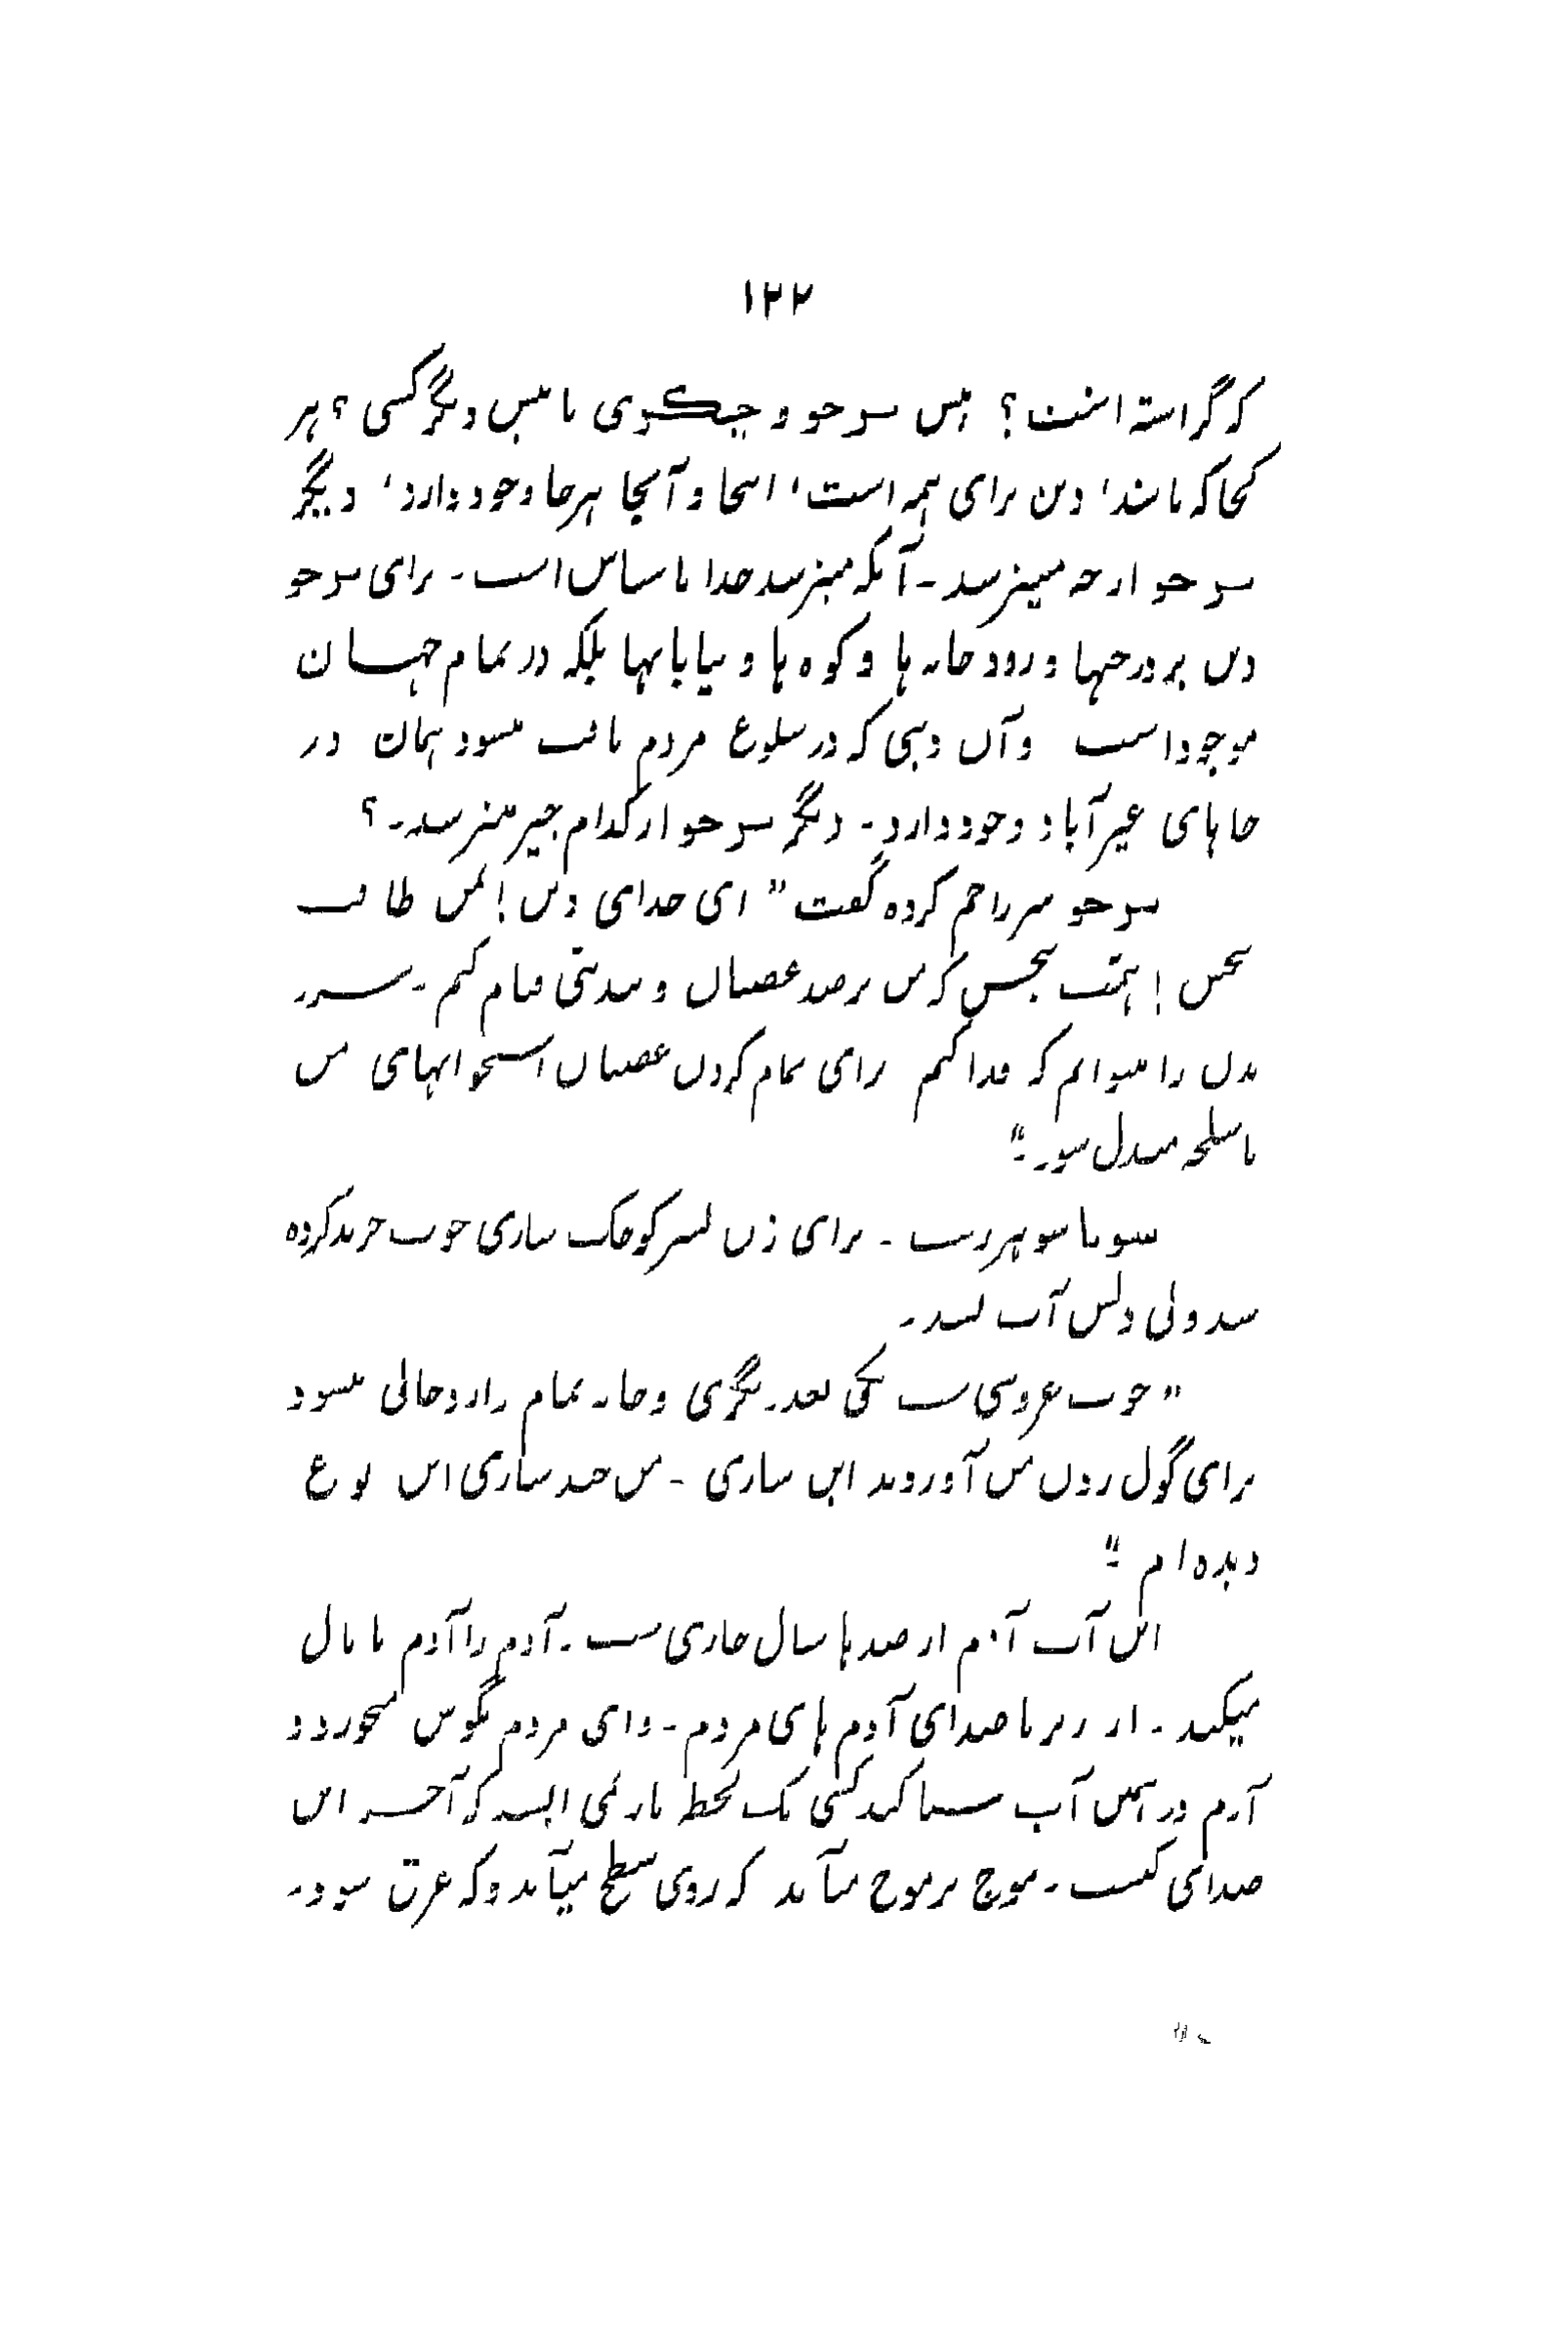 ۱۲۲
که گراسته است؟ پس سوحو و چیکوی یا پس دیگر کسی؟ هر
کجا که باشد، دین برای همه است، اینجا و آنجا هرجا وجود دارد، دیگر
سوحو از چه میترسد - آنکه میترسد خدا ناشناس است - برای سوحو
دین بر درختها و رودخانه ها و کوه ها و بیابانها بلکه در تمام جهان
موجود است و آن دینی که در شلوغ مردم یافت میشود همان در
جاهای غیرآباد وجود دارد - دیگر سوحو از کدام چیز میترسد - ؟
سوحو سر را خم کرده گفت "ای خدای دین! من طالب
بخش! همت ببخش که من بر ضد عصیان و بدبینی قیام کنم -
بدن را میتوانم که فدا کنم برای تمام کردن عصیان استخوانهای من
باسلحه مبدل شود -"
برای زن پسر کوچک ساری خوب خرید کرده
شد ولی دلش آب نشد -
"خوب عروسی ست یکی بعد دیگری و خانه تمام دارد خالی میشود
برای گول زدن من آوردند این ساری - من چند ساری این نوع
دیده ام -"
این آب آدم از صدها سال جاری ست - آدم را آدم پایمال
میکند - از زیر پا صدای آدم های مردم - وای مردم بگوش میخورد
آدم در همین آب شنا کند کسی یک لحظه باز نمی ایستد که آخر این
صدای کیست - موج بر موج میآید که روی سطح میآید و که غرق شود -